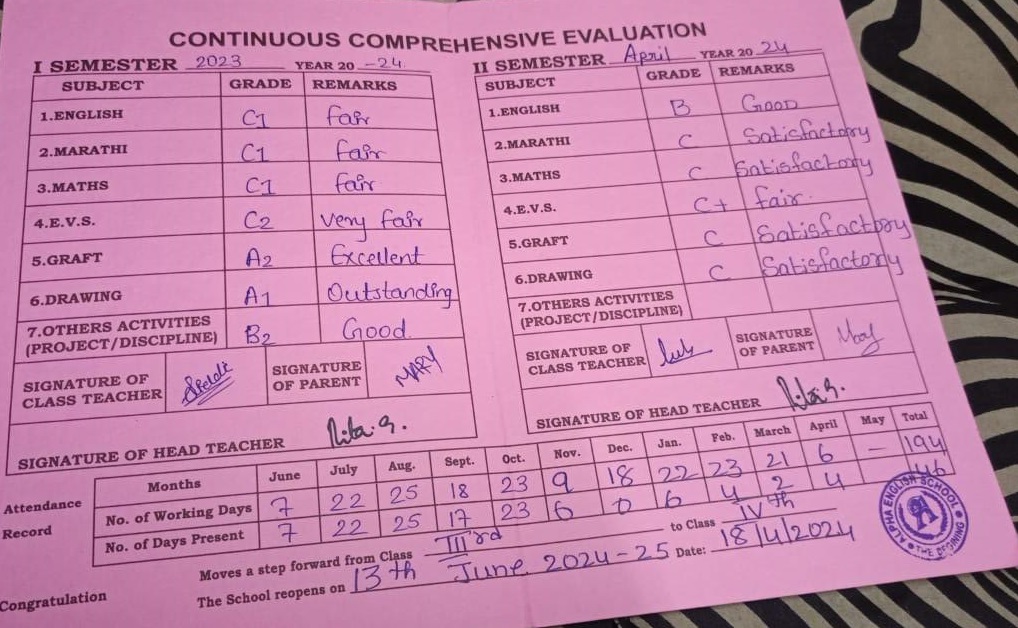 CONTINUOUS COMPREHENSIVE EVALUATION
I SEMESTER 2023 YEAR 20 -24
SUBJECT GRADE REMARKS
1.ENGLISH C1 fair
2.MARATHI C1 fair
3.MATHS C1 fair
4.E.V.S. C2 very fair
5.GRAFT A2 Excellent
6.DRAWING A1 Outstanding
7.OTHERS ACTIVITIES
(PROJECT/DISCIPLINE) B2 Good
SIGNATURE OF
CLASS TEACHER
SIGNATURE
OF PARENT MARY
SIGNATURE OF HEAD TEACHER Rita.S.
II SEMESTER April YEAR 20 24
SUBJECT GRADE REMARKS
1.ENGLISH B Good
2.MARATHI C Satisfactory
3.MATHS C Satisfactory
4.E.V.S. C+ fair.
5.GRAFT C Satisfactory
6.DRAWING C Satisfactory
7.OTHERS ACTIVITIES
(PROJECT/DISCIPLINE)
SIGNATURE OF
CLASS TEACHER
SIGNATURE
OF PARENT
SIGNATURE OF HEAD TEACHER Rita S.
Attendance
Record
Months June July Aug. Sept. Oct. Nov. Dec. Jan. Feb. March April May Total
No. of Working Days 7 22 25 18 23 9 18 22 23 21 6 - 194
No. of Days Present 7 22 25 17 23 6 0 6 4 2 4
Moves a step forward from Class III rd to Class IV th
Congratulation The School reopens on 13th June 2024-25 Date: 18/4/2024
ALPHA ENGLISH SCHOOL
A